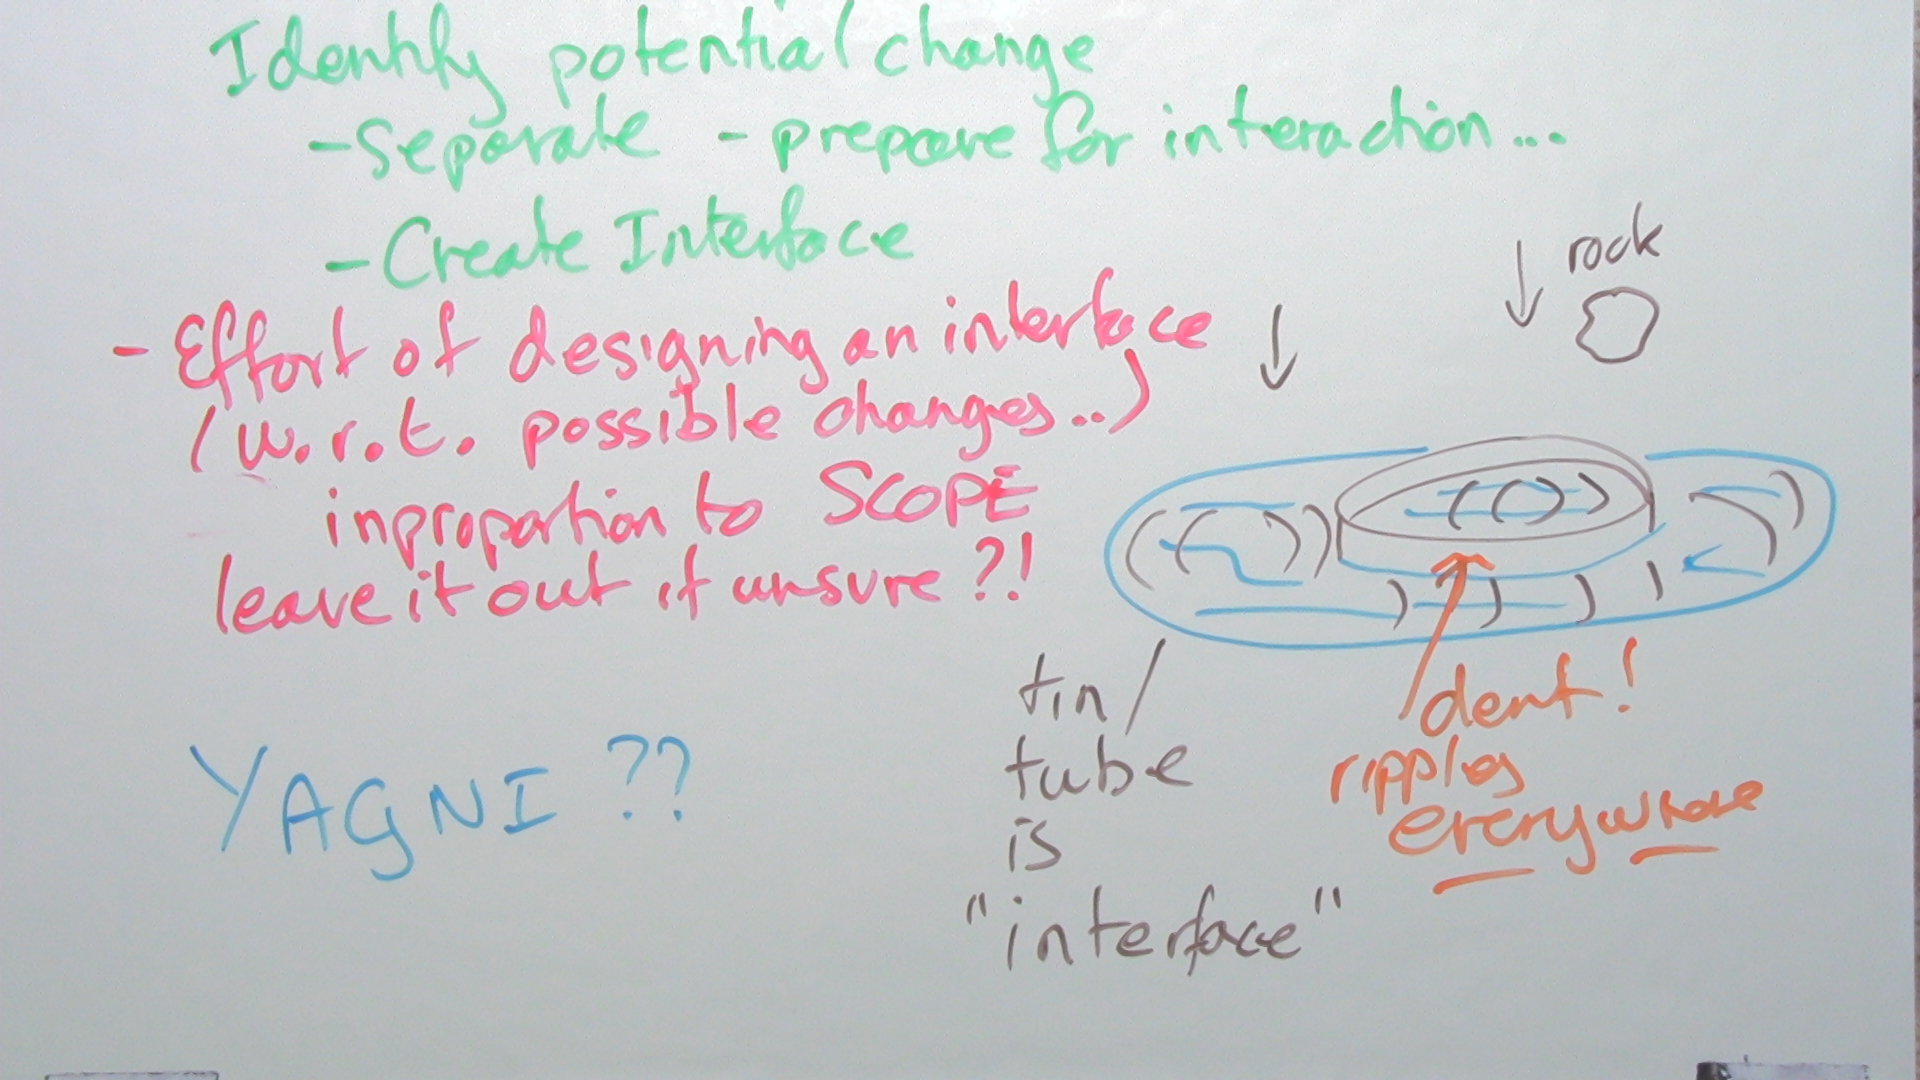 Identify potential change
- Separate - prepare for interaction...
- Create Interface
- Effort of designing an interface
(w.r.t. possible changes..)
in proportion to SCOPE
leave it out if unsure ?!
YAGNI ??
rock
tin/
tube
is
"interface"
dent!
ripples
everywhere